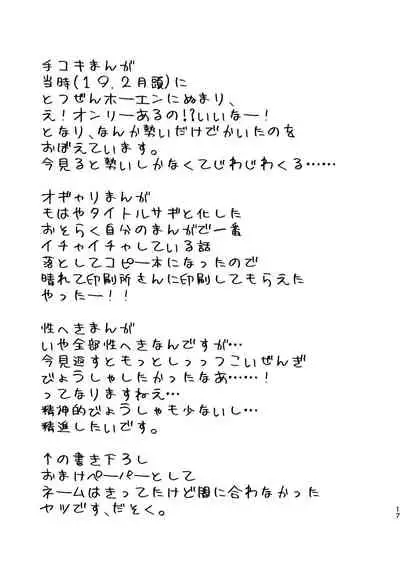 手コキまんが
当時(19.2月頭)に
とつぜんホーエンにぬまり、
え!オンリーあるの!?いいなー!
となり、なんか勢いだけでかいたのを
おぼえています。
今見ると勢いしかなくてじわじわくる……
オギャりまんが
もはやタイトルサギと化した
おそらく自分のまんがで一番
イチャイチャしている話
落としてコピー本になったので
晴れて印刷所さんに印刷してもらえた
やったー!!
性へきまんが
いや全部性へきなんですが…
今見返すともっとしっつこいぜんぎ
びょうしゃしたかったなあ……!
ってなりますねえ…
精神的びょうしゃも少ないし…
精進したいです。
↑の書き下ろし
おまけペーパーとして
ネームはきってたけど間に合わなかった
ヤツです、だそく。
17